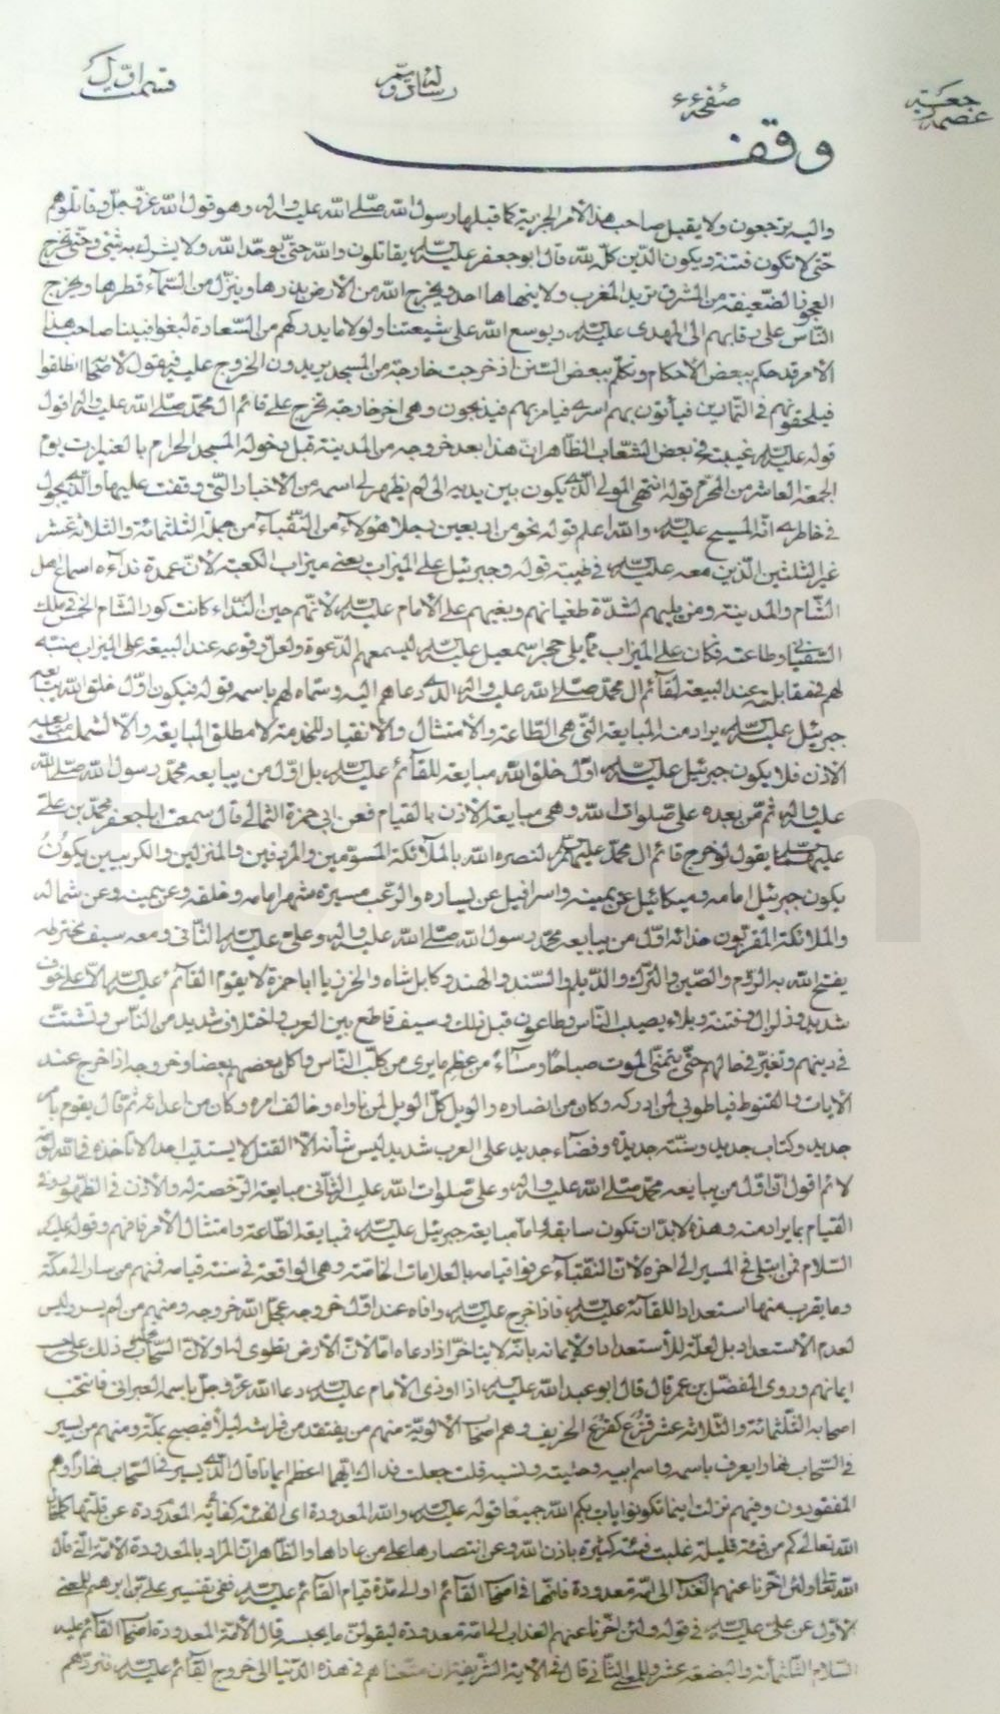 قسمت اوّل
رسائل و
صفحه ٤٤
عصمة و رجعت
وقف
واليه يرجعون ولا يقبل صاحب هذا الأمر الجزية كما قبلها رسول الله صلّى الله عليه واله وهو قول الله عزّ وجلّ وقاتلوهم
حتّى لا تكون فتنة ويكون الدّين كلّه للّه قال ابو جعفر عليه السلام يقاتلون والله حتّى يوحّد الله ولا يشرك به شئ وحتّى تخرج
العجوز الضّعيفة من المشرق تريد المغرب ولا ينهاها احد ويخرج الله من الأرض بذرها وينزّل من السّمآء قطرها ويخرج
النّاس على رقابهم الى المهدى عليه السلام ويوسع الله على شيعتنا ولولا ما يدركهم من السّعادة لبغوا فبينا صاحب هذا
الأمر قد حكم ببعض الأحكام وتكلّم ببعض السّنن اذ خرجت خارجة من المسجد يريدون الخروج عليه فيقول لأصحابه انطلقوا
فيلحقونهم فى التّمّارين فيأتون بهم اسرى فيأمر بهم فيذبحون وهى اخر خارجة تخرج على قائم ال محمّد صلّى الله عليه واله اقول
قوله عليه السلام غيبت فى بعض الشّعاب الظّاهر انّ هذا بعد خروجه من المدينة قبل دخوله المسجد الحرام بالعنيزت يوم
الجمعة العاشر من المحرّم قوله انتهى المولى الّذى يكون بين يديه الى لم يظهر لى اسمه من الأخبار الّتى وقفت عليها والّذى يجول
فى خاطرى انّه المسيح عليه السلام والله اعلم قوله نحو من اربعين رجلا هؤلآء من النّقبآء من جملة الثّلثمائة والثّلاثة عشر
غير الثلثين الّذين معه عليه السلام فى غيبته قوله وجبرئيل على الميزاب يعنى ميزاب الكعبة لأنّ عمدة ندآءه اسماع اهل
الشّام والمدينة ومن يليهم لشدّة طغيانهم وبغيهم على الأمام عليه السلام لأنّهم حين النّدآء كانت كور الشّام الخمس فى ملك
السّفيانى وطاعته فكان على الميزاب ممّا يلى حجر اسمعيل عليه السلام ليسمعهم الدّعوة ولعلّ وقوعه عند البيعة على الميزاب منّة
لهم فى مقابلته عند البيعة لقائم ال محمّد صلّى الله عليه واله الّذى دعاهم اليه وسمّاه لهم باسمه قوله فيكون اوّل خلق الله يبايعه
جبرئيل عليه السلام يراد منه المبايعة الّتى هى الطّاعة والأمتثال والأنقياد للخدمة لا مطلق المبايعة والّا لشملت مبايعة
الأذن فلا يكون جبرئيل عليه السلام اوّل خلق الله مبايعة للقآئم عليه السلام بل اوّل من يبايعه محمّد رسول الله صلّى الله
عليه واله ثمّ من بعده على صلوات الله وهى مبايعة الأذن بالقيام فعن ابى حمزة الثّمالى قال سمعت ابا جعفر محمّد بن على
عليهما السلام يقول لو خرج قائم ال محمّد عليهم السلام لنصره الله بالملآئكة المسوّمين والمردفين والمنزلين والكروبيين يكونُ
يكون جبرئيل امامه وميكائيل عن يمينه واسرافيل عن يساره والرّعب مسيرة شهر امامه وخلفه وعن يمينه وعن شماله
والملآئكة المقرّبون حذائه اوّل من يبايعه محمّد رسول الله صلّى الله عليه واله وعلىّ عليه السلام الثّانى ومعه سيف مخترطه
يفتح الله به الرّوم والصّين والتّرك والدّيلم والسّند والهند وكابل شاه والخزر يا ابا حمزة لا يقوم القآئم عليه السلام الّا على خوف
شديد وزلزال وفتنة وبلاء يصيب النّاس وطاعون قبل ذلك وسيف قاطع بين العرب واختلاف شديد من النّاس وتشتّت
فى دينهم وتغيّر فى حالهم حتّى يتمنّى الموت صباحاً ومسآء من عظم ما يرى من كلَب النّاس واكل بعضهم بعضا وخروجه اذا خرج عند
الأياس والقنوط فيا طوبى لمن ادركه وكان من انصاره والويل كلّ الويل لمن ناواه وخالف امره وكان من اعدائه ثمّ قال يقوم بأمر
جديد وكتاب جديد وسنّة جديدة وقضآء جديد على العرب شديد ليس شأنه الّا القتل لا يستتيب احدا لا تأخذه فى الله لومة
لائم اقول انّ اوّل من يبايعه محمّد صلّى الله عليه واله وعلى صلوات الله عليه الثّانى مبايعة الرّخصة له والأذن فى الظّهور وفى
القيام بما يراد منه وهذه لابدّ ان تكون سابقة وامّا مبايعة جبرئيل عليه السلام فمبايعة الطّاعة وامتثال الأمر فافهم وقوله عليه
السّلام فمن ابتلى فى المسير الى اخره لأنّ النّقبآء عرفوا قيامه بالعلامات الخاصّة وهى الواقعة فى سنة قيامه فمنهم من سار الى مكّة
وما يقرب منها استعدادا للقآئه عليه السلام فاذا خرج عليه السلام وافاه عند اوّل خروجه عجّل الله خروجه ومنهم من لم يسر وليس
لعدم الأستعداد بل لعلّة للأستعداد ولأيمانه بانّه لا يتاخّر اذا دعاه امّا لأنّ الأرض تطوى لها ولأنّ السّحاب ذلك على حسب
ايمانهم وروى المفضّل بن عمر قال قال ابو عبد الله عليه السلام اذا اوذى الأمام عليه السلام دعا الله عزّ وجلّ باسمه العبرانى فانتخب
اصحابه الثّلثمائة والثّلاثة عشر قزع كقزع الخريف وهم اصحاب الألوية منهم من يفتقد من فراشه ليلاً فيصبح بمكّة ومنهم من يسير
فى السّحاب نهارا يعرف باسمه واسم ابيه وحليته ونسبه قلت جعلت فداك ايّهما اعظم ايمانا قال الّذى يسير فى السّحاب نهاراً وهم
المفقودون وفيهم نزلت اينما تكونوا يات بكم الله جميعًا قوله عليه السلام والله المعدودة اى الفئة كفائة المعدودة عن قلّتها كما قال
الله تعالى كم من فئة قليلة غلبت فئة كثيرة باذن الله وعن انتصارها على من عاداها والظّاهر انّ المراد بالمعدودة الأمّة الّتى قال
الله تعالى ولئن اخّرنا عنهم العذاب الى امّة معدودة فانّها فى اصحاب القآئم او الى مدّة قيام القآئم عليه السلام ففى تفسير على بن ابرهيم للمعنى
الأوّل عن على عليه السلام فى قوله ولئن اخّرنا عنهم العذاب الى امّة معدودة ليقولنّ ما يحبسه قال الأمّة المعدودة اصحاب القآئم عليه
السّلام الثلثمائة والبضعة عشر وللمعنى الثّانى قال فى الأية الشّريفة ان متّعناهم فى هذه الدّنيا الى خروج القآئم عليه السلام فنردّهم